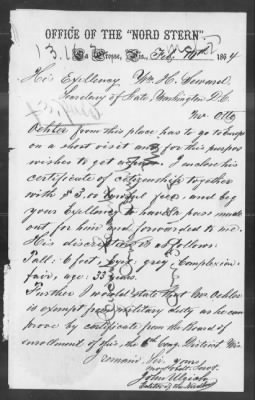 OFFICE OF THE "NORD STERN",
La Crosse, Wis., Feby 10th 1864
His Exellency Wm. H. Seward,
Secretary of State, Washington D.C.
Mr. Otto
Oehler from this place has to go to Europe
on a short visit and for this purpose
wishes to get a pass. I inclose his
certificate of citizenship together
with $3.00 fees, and beg
your Exellency to have a pass made
out for him and forwarded to me.
His discription is as follows:
Tall: 6 feet, eyes: grey, complexion:
fair, age: 33 years.
Further I would state that Mr. Oehler
is exempt from military duty as he can
prove by certificate from the Board of
enrollment of this, the 6th Cong. District Wis.
I remain Sir, yours
most obdt. Servt.
John Ulrich
Editor of the Nordstern